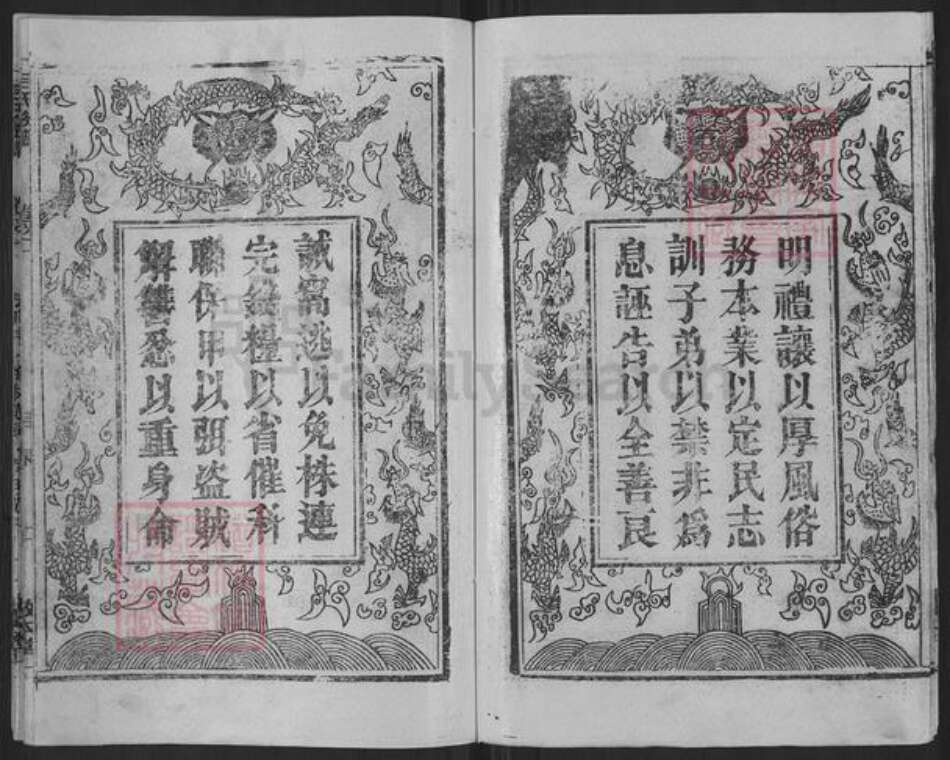 明禮讓以厚風俗
務本業以定民志
訓子弟以禁非爲
息誣告以全善良
誡窩逃以免株連
完錢糧以省催科
聯保甲以弭盜賊
解讐忿以重身命
FamilySearch